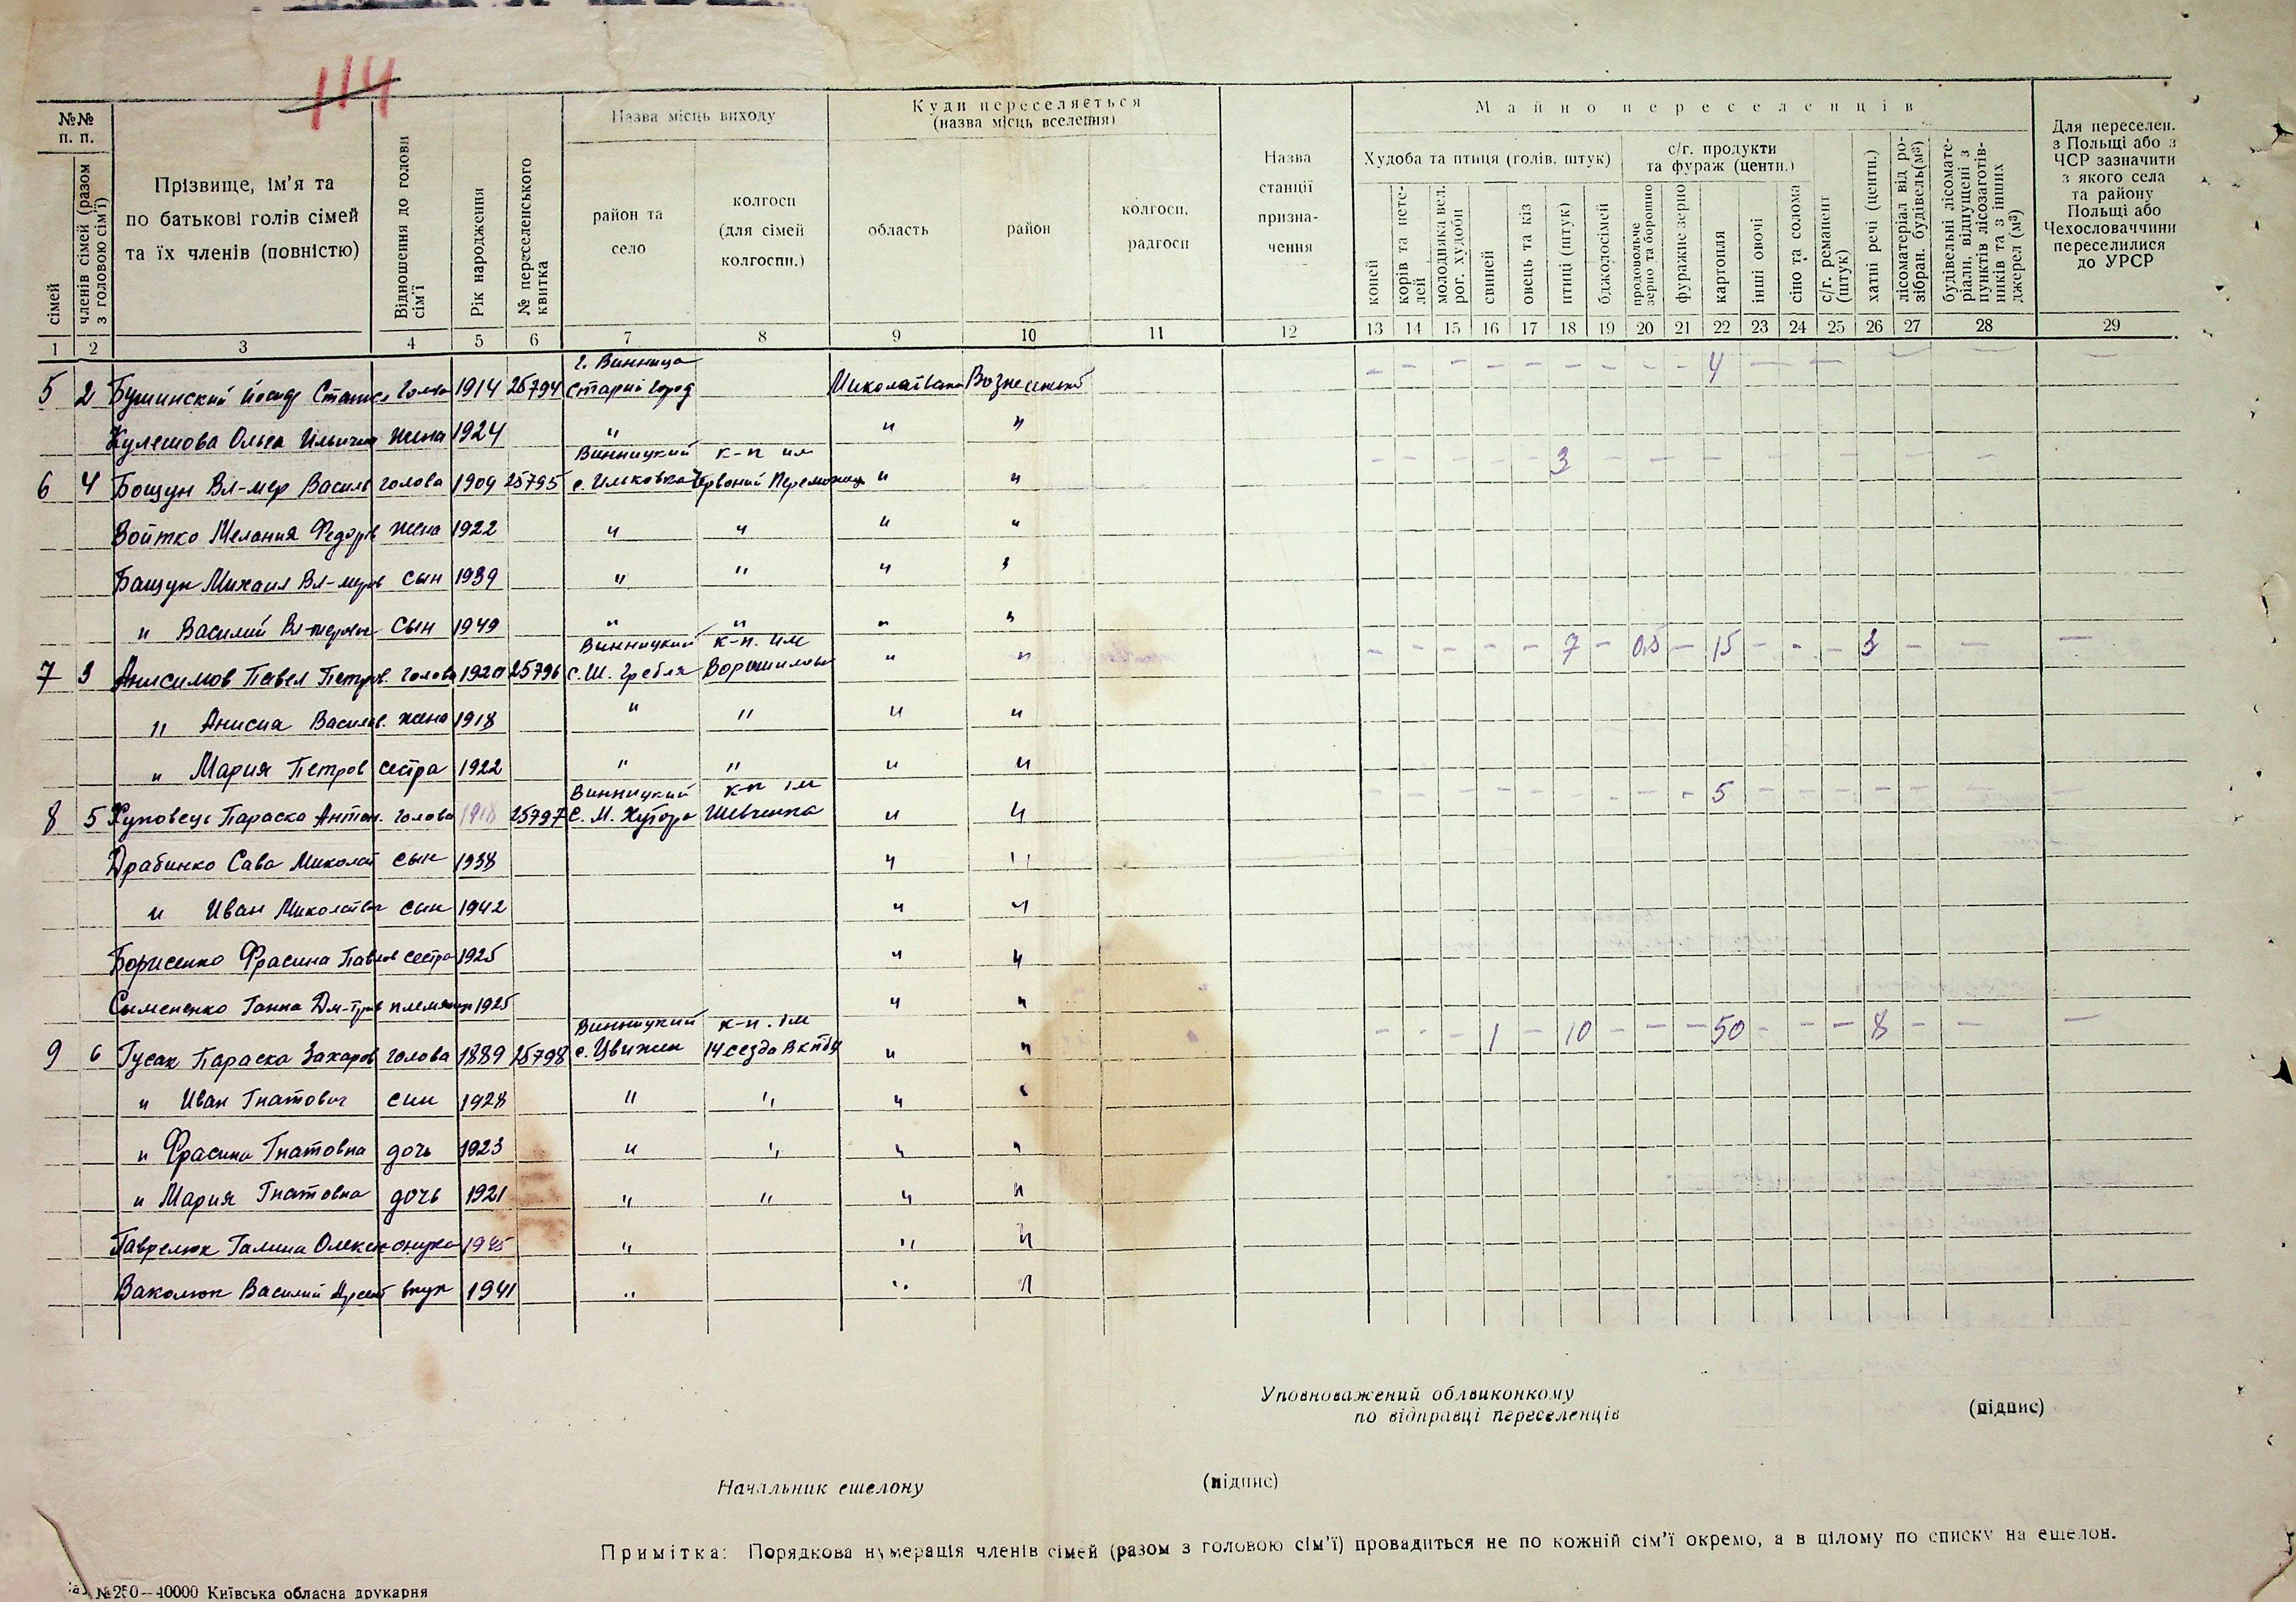 114
№№ п. п.
сімей
членів сімей (разом з головою сім'ї)
Прізвище, ім'я та
по батькові голів сімей
та їх членів (повністю)
Відношення до голови сім'ї
Рік народження
№ переселенського квитка
Назва місць виходу
район та село
колгосп (для сімей колгоспн.)
Куди переселяється
(назва місць вселення)
область
район
колгосп, радгосп
Назва станції призна- чення
Майно переселенців
Худоба та птиця (голів, штук)
коней
корів та нете- лей
молодняка вел. рог. худоби
свиней
овець та кіз
птиці (штук)
бджолосімей
с/г. продукти та фураж (центн.)
продовольче зерно та борошно
фуражне зерно
картопля
інші овочі
сіно та солома
с/г. реманент (штук)
хатні речі (центн.)
лісоматеріал від ро- зібран. будівель (м³)
будівельні лісомате- ріали, відпущені з пунктів лісозаготів- ників та з інших джерел (м³)
Для переселен. з Польщі або з ЧСР зазначити з якого села та району Польщі або Чехословаччини переселилися до УРСР
1 2 3 4 5 6 7 8 9 10 11 12 13 14 15 16 17 18 19 20 21 22 23 24 25 26 27 28 29
г. Винница
5 2 Бушинский Иосиф Станис голова 1914 25794 Старий город Миколаївська - - - - - - - - - 4 — — — — —
Кулешова Ольга Ильични жена 1924 " " "
Винницкий к-п им
6 4 Бощун Вл-мер Василь голова 1909 25795 Червоний Переможець " " - - - - - 3 - - - - - - - - - - -
Войтко Мелания Федоров жена 1922 " " " "
Бащун Михаил Вл-меров сын 1939 " " " "
" Василий Вл-меров сын 1949 " " " "
Винницкий к-п. им
7 3 Анисимов Павел Петров. голова 1920 25796 с. Ш. Гребля Ворошилова " " - - - - - 7 - 0.5 - 15 - - - 3 - - —
" Анисия Василив. жена 1918 " " " "
" Мария Петров сестра 1922 " " " "
Винницкий к-п ім
8 5 Параска Антон. голова 1918 25797 с. М. Хутора Шевченка " " - - - - - - - - - 5 - - - - - - -
Драбинко Сава Миколай сын 1938 " "
" Иван Миколаевич сын 1942 " "
Борисенко Фрасина Павлов сестра 1925 " "
Сымененко Ганна Дм-трив 1925 " "
Винницкий к-п. ім
9 6 Гусак Параска Захаров голова 1889 25798 с. Цвижин 14 сезда ВКПбу " " - - - 1 - 10 - - - 50 - - - 8 - - —
" Иван Гнатович син 1928 " " " "
" Фрасина Гнатовна дочь 1923 " " " "
" Мария Гнатовна дочь 1921 " " " "
Гаврелюк Галина онучка 1945 " " "
Ваколюк Василий внук 1941 " " "
Уповноважений облвиконкому
по відправці переселенців
(підпис)
Начальник ешелону
(підпис)
Примітка: Порядкова нумерація членів сімей (разом з головою сім'ї) провадиться не по кожній сім'ї окремо, а в цілому по списку на ешелон.
№ 250—40000 Київська обласна друкарня